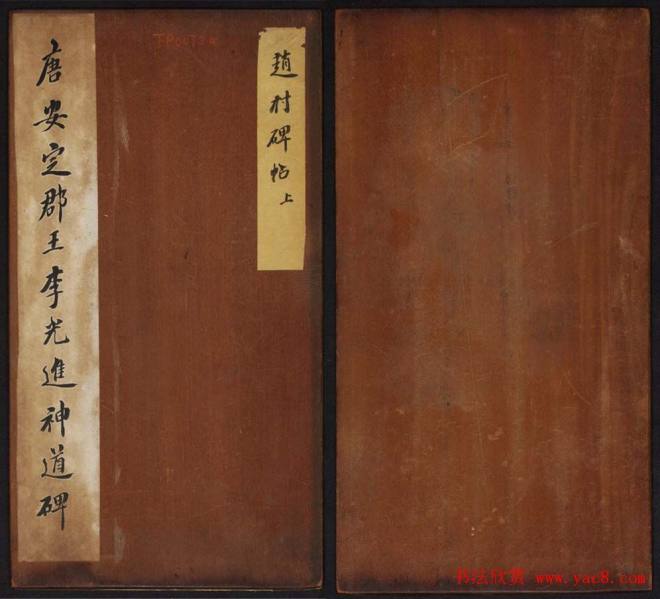 唐安定郡王李光進神道碑
趙村碑帖上
書法欣赏 www.yac8.com